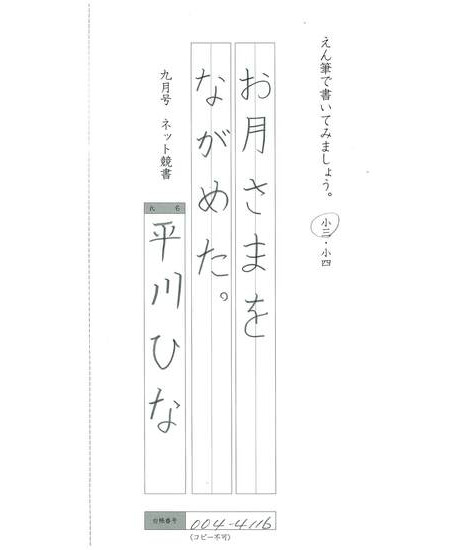 えん筆で書いてみましょう。 小三・小四
お月さまを
ながめた。
九月号 ネット競書
氏名
平川ひな
台帳番号 004-4116
(コピー不可)